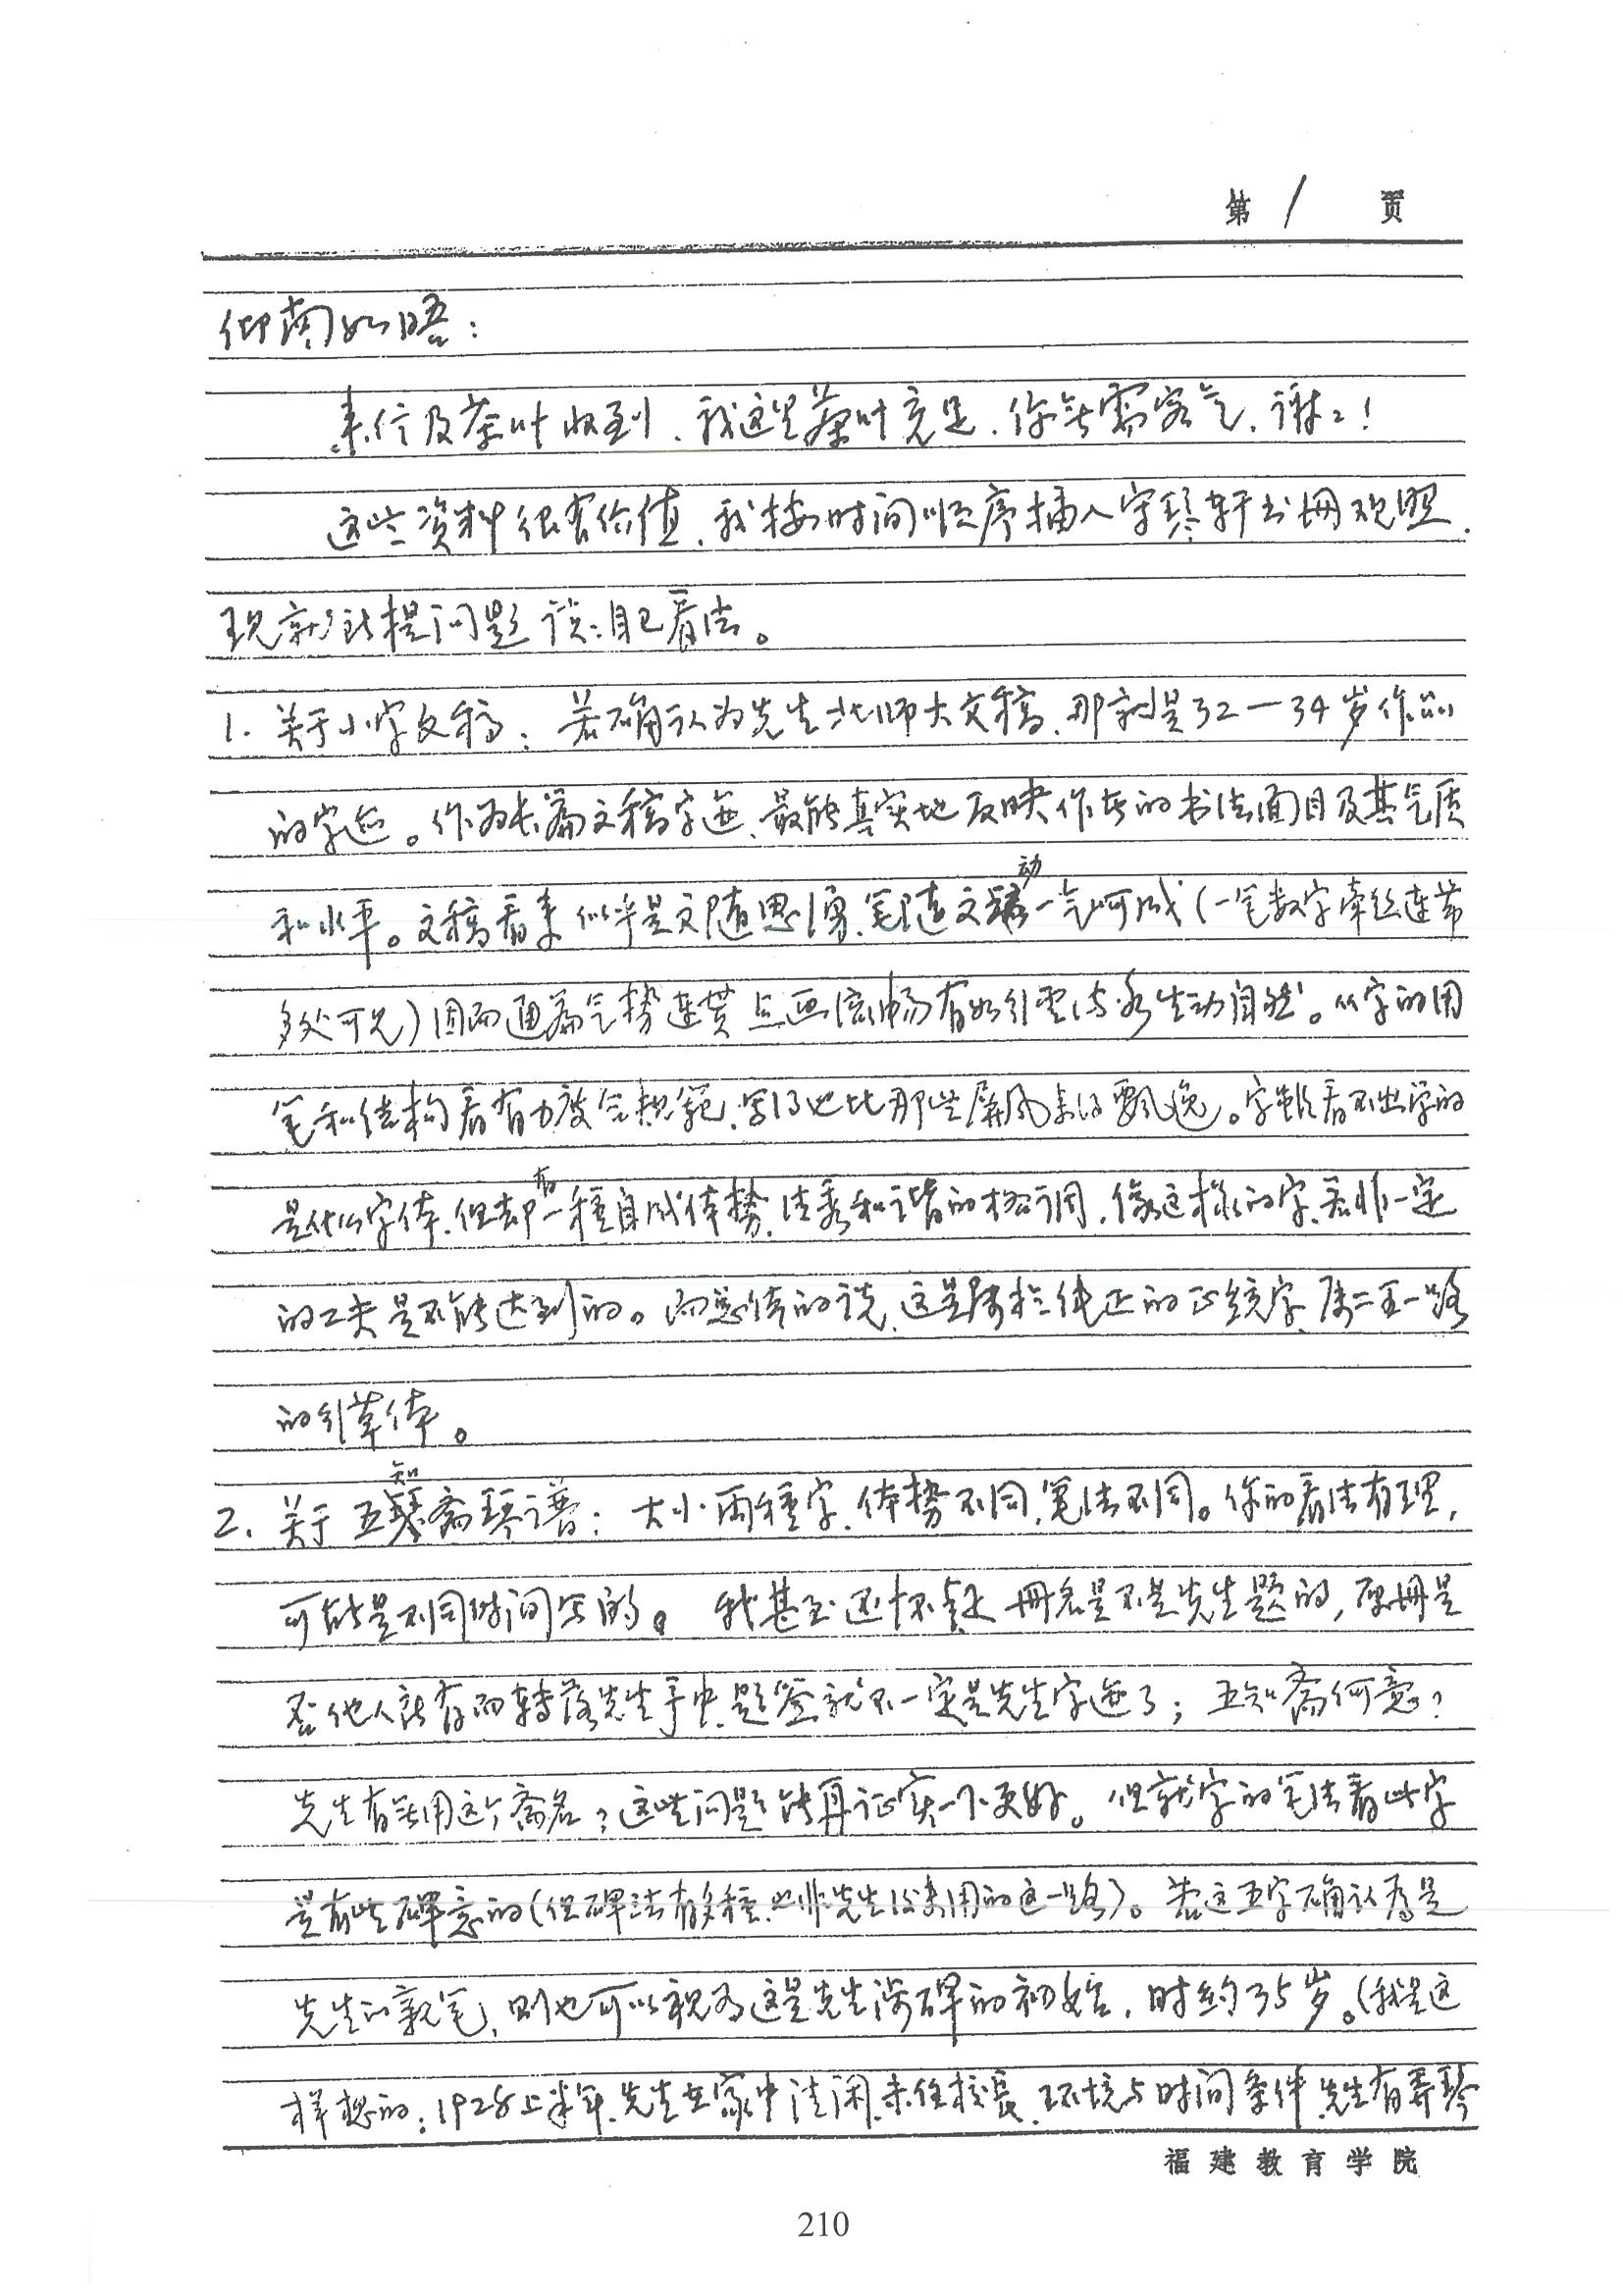 第 1 页
仰南如晤：
来信及茶叶收到、我这里茶叶充足、你无需客气、谢々！
这些资料很有价值、我按时间顺序插入字琴轩书册观照、
现就所提问题谈々自己看法。
1. 关于小字文稿：若确认为先生北师大文稿、那就是32—34岁作品
的字迹。作为长篇文稿字迹、最能真实地反映作者的书法面目及其气质
和水平。文稿看来似乎是文随思涌、笔随文动一气呵成（一笔数字牵丝连带
多处可见）因而通篇气势连贯点画流畅有如行云流水生动自然。从字的用
笔和结构看有力度合规范、写得也比那些屏风来得飘逸。字虽看不出学的
是什么字体、但却有一种自成体势、清秀和谐的格调、像这样的字、若非一定
的工夫是不能达到的。而总体的说、这是属于纯正的正统字、属二王一路
的行草体。
2. 关于五知斋琴谱：大小两种字、体势不同、笔法不同。你的看法有理，
可能是不同时间写的。我甚至还怀疑册名是不是先生题的，原册是
否他人所有而转落先生手中、题签就不一定是先生字迹了；五知斋何意？
先生有无用这个斋名？这些问题能再证实一下更好。但就字的笔法看此字
是有些碑意的（但碑法有多种、也非先生后来用的这一路）。若这五字确认为是
先生的亲笔，则也可以视为这是先生涉碑的初始，时约35岁。（我是这
样想的：1928上半年、先生在家中清闲、未任校长、环境与时间条件、先生有弄琴
福建教育学院
210